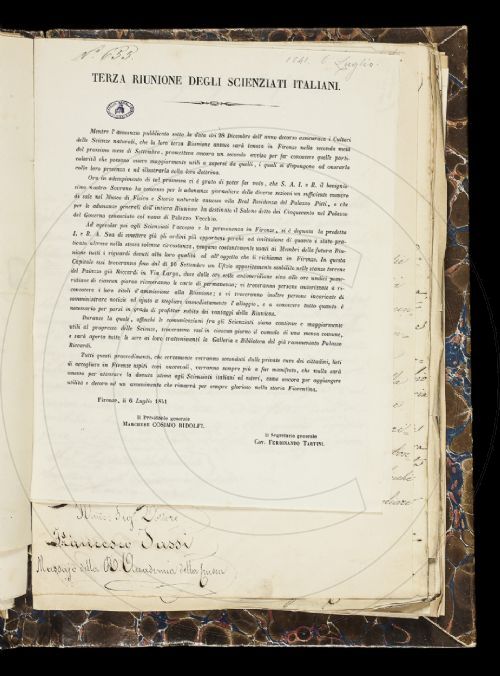 N.° 633.
1841. 6 Luglio.
TERZA RIUNIONE DEGLI SCIENZIATI ITALIANI.
Mentre l'annunzio pubblicato sotto la data dei 28 Dicembre dell'anno decorso assicurava i Cultori
delle Scienze naturali, che la loro terza Riunione annua sarà tenuta in Firenze nella seconda metà
del prossimo mese di Settembre, prometteva ancora un secondo avviso per far conoscere quelle parti-
colarità che possono essere maggiormente utili a sapersi da quelli, i quali si dispongono ad onorarla
colla loro presenza e ad illustrarla colla loro dottrina.
Ora in adempimento di tal promessa ci è grato di poter far noto, che S. A. I. e R. il benignis-
simo nostro Sovrano ha concesso per le adunanze giornaliere delle diverse sezioni un sufficiente numero
di sale nel Museo di Fisica e Storia naturale annesso alla Real Residenza del Palazzo Pitti, e che
per le adunanze generali dell'intiera Riunione ha destinato il Salone detto dei Cinquecento nel Palazzo
del Governo conosciuto col nome di Palazzo Vecchio.
Ad agevolar poi agli Scienziati l'accesso e la permanenza in Firenze, si è degnata la prodetta
I. e R. A. Sua di emettere più gli ordini più opportuni perchè ad imitazione di quanto è stato pra-
ticato altrove nella stessa solenne circostanza, vengano costantemente usati ai Membri della futura Riu-
nione tutti i riguardi dovuti alla loro qualità ed all'oggetto che li richiama in Firenze. In questa
Capitale essi troveranno fino dal dì 10 Settembre un Ufizio appositamente stabilito nelle stanze terrene
del Palazzo già Riccardi in Via Larga, dove dalle ore sette antimeridiane sino alle ore undici pome-
ridiane di ciascun giorno riceveranno le carte di permanenza; vi troveranno persone autorizzate a ri-
conoscere i loro titoli d'ammissione alla Riunione; e vi troveranno inoltre persone incaricate di
somministrare notizie ed ajuto a scegliere immediatamente l'alloggio, e a conoscere tutto quanto è
necessario per porsi in grado di profittar subito dei vantaggi della Riunione.
Durante la quale, affinchè le comunicazioni fra gli Scienziati siano continue e maggiormente
utili al progresso delle Scienze, troveranno essi in ciascun giorno il comodo di una mensa comune,
e sarà aperta tutte le sere ai loro trattenimenti la Galleria e Biblioteca del già rammentato Palazzo
Riccardi.
Tutti questi provvedimenti, che certamente verranno secondati dalle private cure dei cittadini, lieti
di accogliere in Firenze ospiti così onorevoli, varranno sempre più a far manifesto, che nulla sarà
omesso per attestare la dovuta stima agli Scienziati italiani ed esteri, come ancora per aggiungere
utilità e decoro ad un avvenimento che rimarrà per sempre glorioso nella storia Fiorentina.
Firenze, li 6 Luglio 1841
Il Presidente generale
MARCHESE COSIMO RIDOLFI.
Il Segretario generale
CAV. FERDINANDO TARTINI.
Francesco Tassi
Massajo della R. Accademia della Crusca